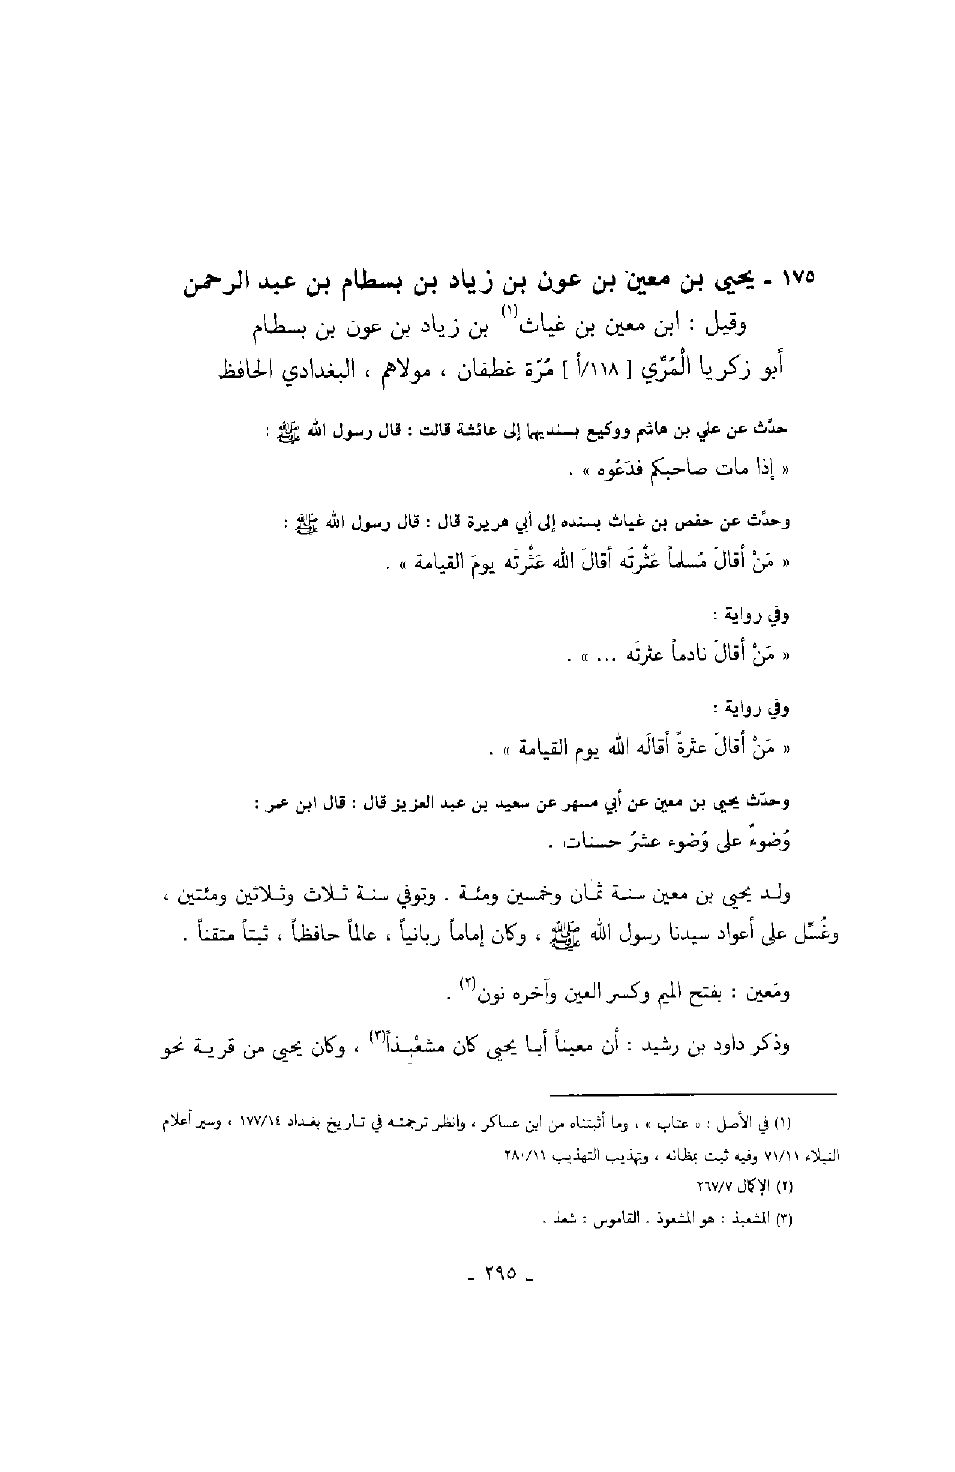 ١٧٥ ـ يحيى بن معين بن عون بن زياد بن بسطام بن عبد الرحمن
وقيل : ابن معين بن غياث(١) بن زياد بن عون بن بسطام
أبو زكريا الْمُرِّي [ ١١٨/أ ] مُرّة غطفان ، مولاهم ، البغدادي الحافظ
حدَّث عن علي بن هاشم ووكيع بسنديهما إلى عائشة قالت : قال رسول الله ﷺ :
« إذا مات صاحبكم فدَعُوه » .
وحدَّث عن حفص بن غياث بسنده إلى أبي هريرة قال : قال رسول الله ﷺ :
« مَنْ أقالَ مُسلماً عَثْرتَه أقالَ الله عَثْرتَه يومَ القيامة » .
وفي رواية :
« مَنْ أقالَ نادماً عثرتَه ... » .
وفي رواية :
« مَنْ أقالَ عثرةً أقالَه الله يوم القيامة » .
وحدّث يحيى بن معين عن أبي مسهر عن سعيد بن عبد العزيز قال : قال ابن عمر :
وُضوءٌ على وُضوء عشرُ حسنات .
ولد يحيى بن معين سنة ثمان وخمسين ومئة . وتوفي سنة ثلاث وثلاثين ومئتين ،
وغُسِّل على أعواد سيدنا رسول الله ﷺ ، وكان إماماً ربانياً ، عالماً حافظاً ، ثبتاً متقناً .
ومَعين : بفتح الميم وكسر العين وآخره نون(٢) .
وذكر داود بن رشيد : أن معيناً أبا يحيى كان مشعْبذاً(٣) ، وكان يحيى من قرية نحو
(١) في الأصل : « عتاب » ، وما أثبتناه من ابن عساكر ، وانظر ترجمته في تاريخ بغداد ١٧٧/١٤ ، وسير أعلام
النبلاء ٧١/١١ وفيه ثبت بمظانه ، وتهذيب التهذيب ٢٨٠/١١
(٢) الإكمال ٢٦٧/٧
(٣) المشعبذ : هو المشعوذ . القاموس : شعذ .
ـ ٢٩٥ ـ